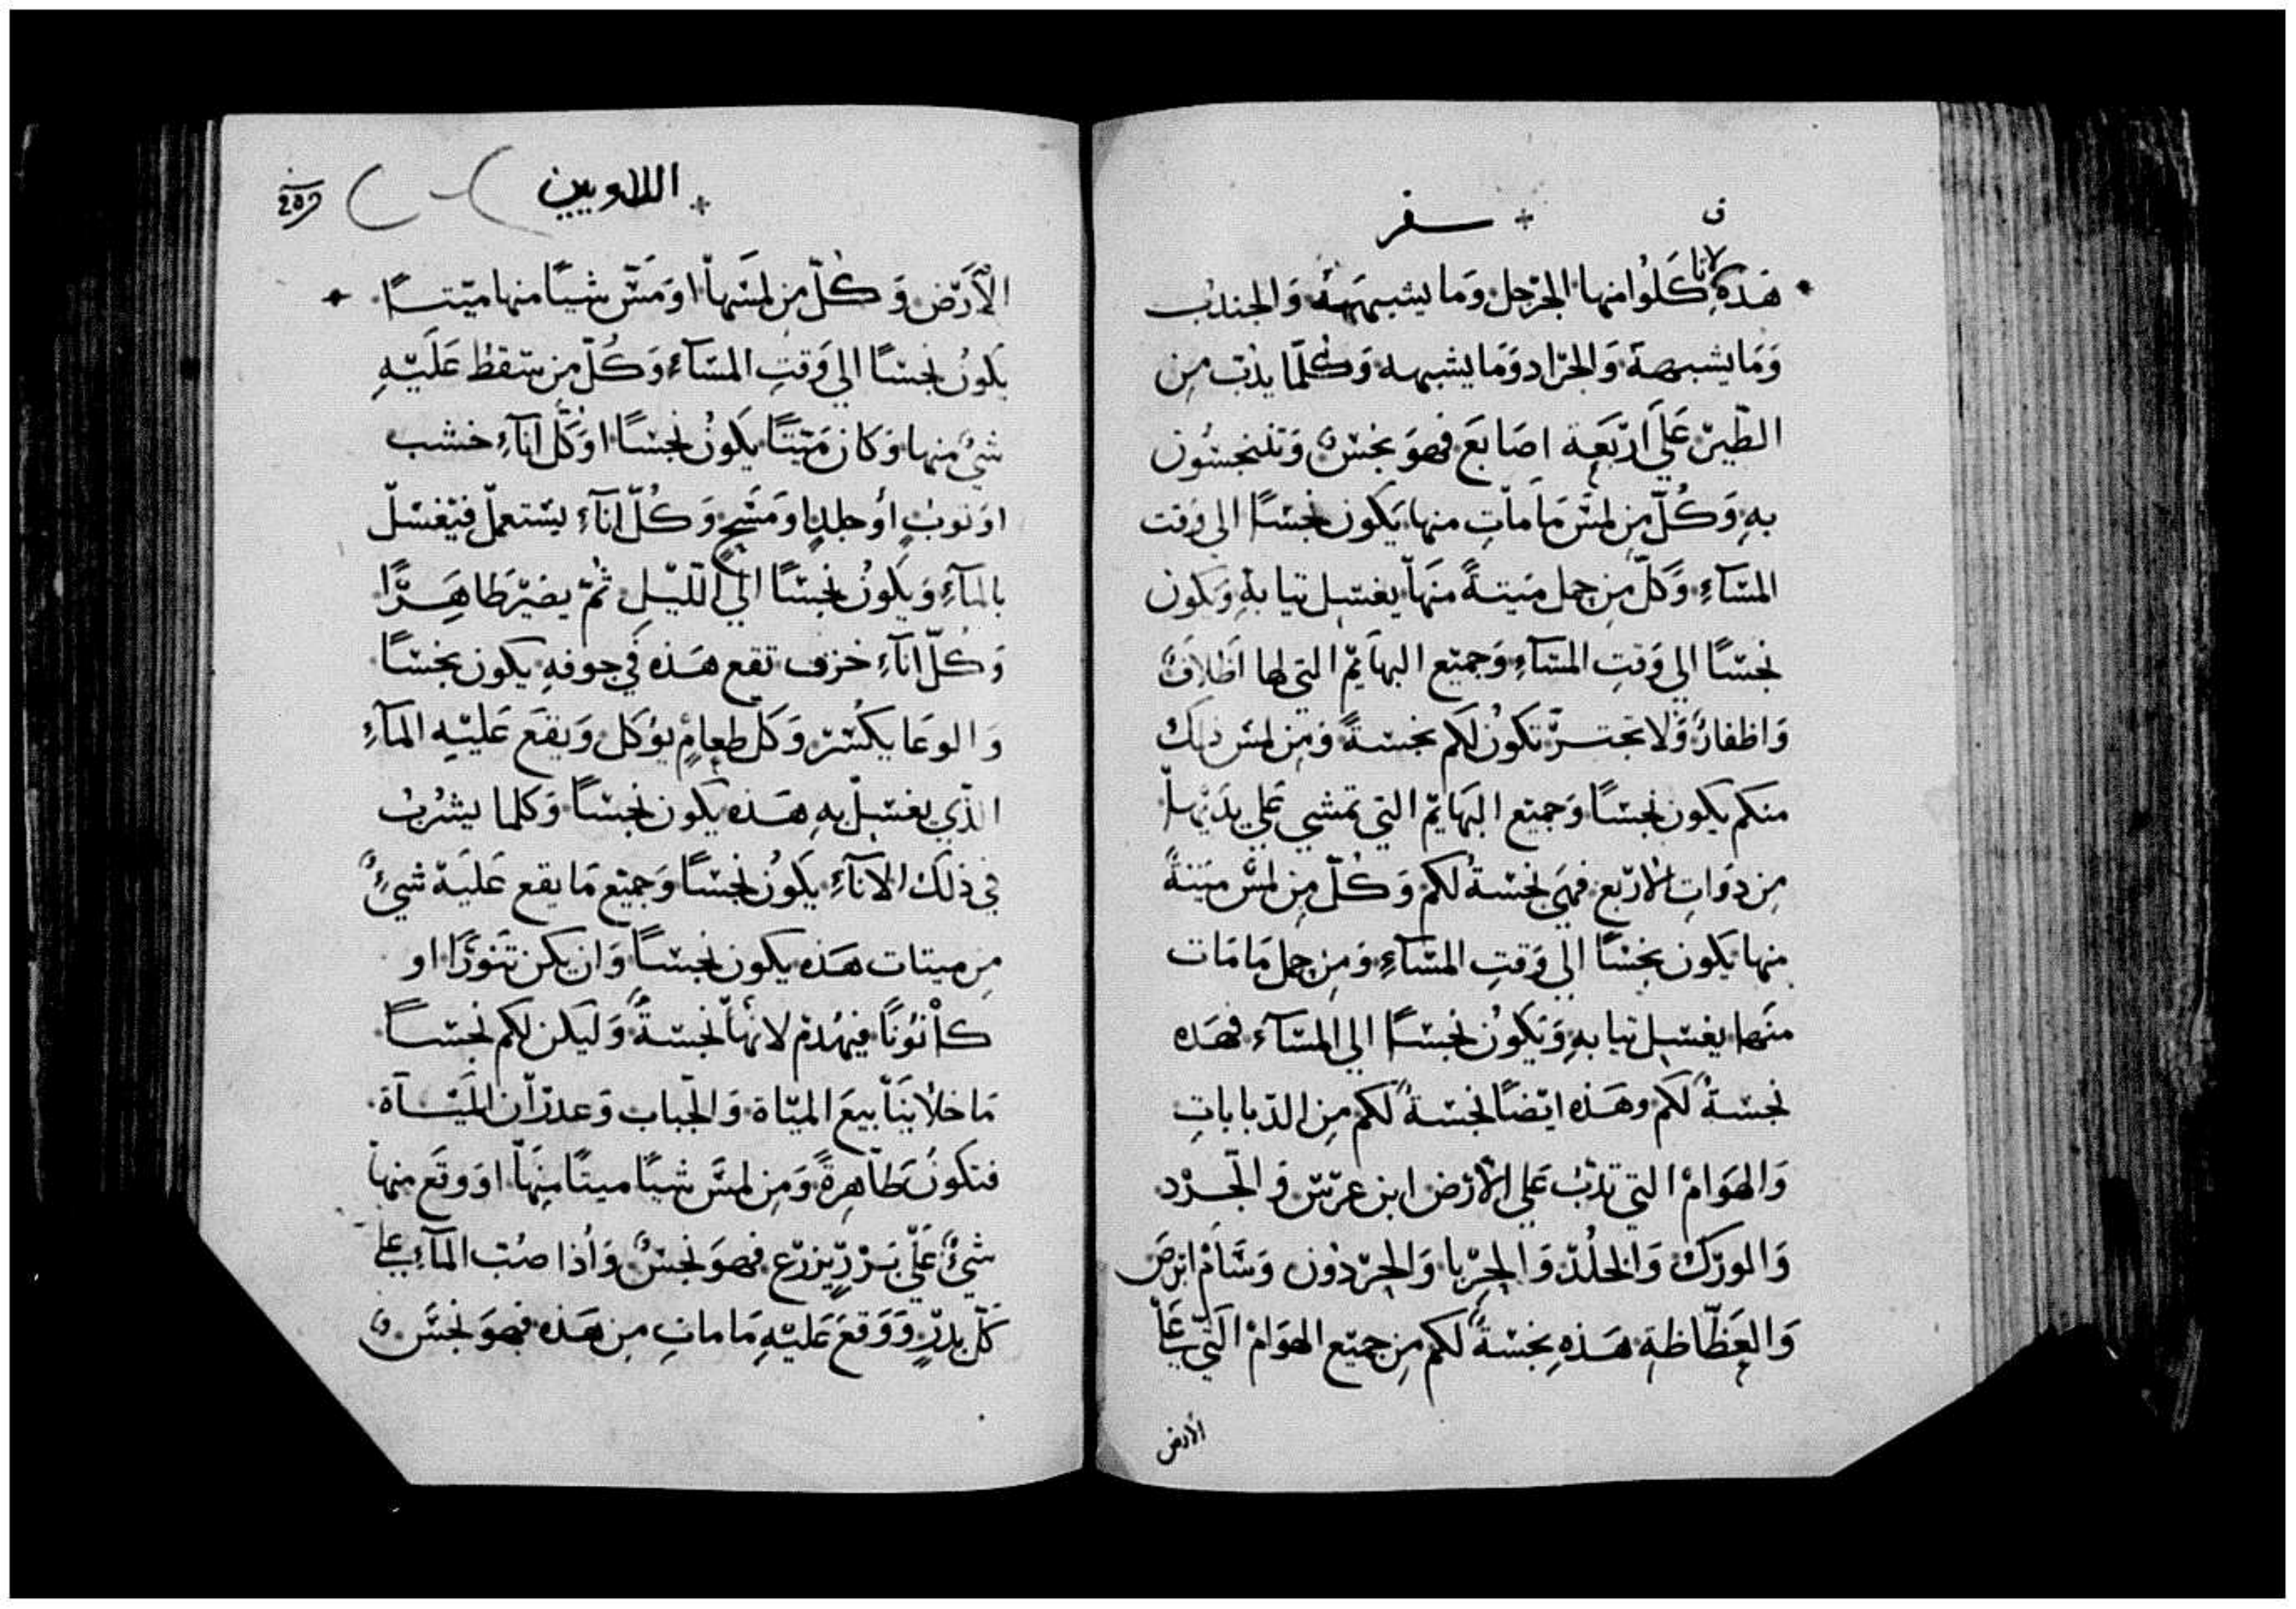 سفر
هَذِهِ لا تاكلوا منها الجرجل وَما يشبههُ وَالجندب
وَمَا يشبهه وَالجرَاد وَمَا يشبهه وَكلّما يدبّ مِن
الطّير عَلَي ارْبَعَة اصَابعَ فهوَ نجسٌ وَتتنجسُون
بهِ وَكُلّ مِن لمسَ مَا مات منها يَكون نجسًا الي وَقت
المسَآءِ وَكلّ مِن حمل مَيتةً منهَا يغسِل تيابهِ وَيكون
نجسًا الي وَقتِ المسَآءِ وَجميع البهايم التي لها اظلافٌ
وَاظفارٌ وَلا تجترّ تكونُ لكم نجسَةً وَمِن لمسَ ذلك
منكم يكون نجسًا وَجميع البهَايم التي تمشي عَلي يدَيها
مِن ذوَاتِ الارْبع فهيَ نجسَة لكم وَكُلّ مِن لمسَ مَيتةً
منها يَكون نجسًا الي وَقتِ المسَآءِ وَمِن حمل مَا مَات
منهَا يغسِل تيابهِ وَيَكونُ نجسًا الي المسَآء فهَذه
نجسَةٌ لكم وهَذه ايضًا نجسَةٌ لكم مِن الدّباباتِ
وَالهوَامْ التي تدّبُ عَلي الارْض ابن عرْس وَالجرْد
وَالورَك وَالخلُدّ وَالحِرْبا وَالحِرْدُون وَسَّامْ ابرَصَ
وَالعَظّاظةِ هَذهِ نجسَةٌ لكم مِن جميْع الهوَامْ التي عَلي
الأرض
اللاويين
الاَرْض وَكُلّ مِن لمسَهَا اوْ مَسّ شيئًا منها ميّتًا
يَكونُ نجسًا الي وَقتِ المسَآءِ وَكُلّ مِن سَقط عَلَيْهِ
شيءٌ منها وَكان مَيّتًا يَكونُ نجسًا اوْ كُلّ انآءِ خشب
اوْ توبٍ أو جلدٍ اوْ مَسْحٍ وَكُلّ انآءِ يسْتعملّ فيغسَلّ
بالمآءِ وَيَكونُ نجسًا الي اللّيلِ ثمّ يصَيْر طَاهِرًا
وَكُلّ انآءِ خزف تقع هَذه في جوفهِ يكون نجسًا
وَالوعَا يكسْر وَكلّ طعامٍ يوكل وَيقع عَليْهِ المآءِ
الذّي يغسِل بهِ هَذه يكون نجسًا وَكلما يشرُبُ
في ذلك الانآءِ يكونُ نجسًا وَجميْع مَا يقع عَليَهْ شيءٌ
مِن ميتات هَذه يكون نجسًا وَان يكن تنورًا او
كانُونًا فيهُدمْ لانهَا نجسَةٌ وَليَكن لكم نجسًا
مَا خلا ينَابيعَ الميَاة وَالجّباب وَغدرَان الميَآة
فتكونُ طَاهِرةً وَمِن لمسَ شيئًا ميتًا منهَا اوْ وقَع منها
شيءٌ عَلي بزْرٍ يزرَع فهوَ نجسٌ وَاُذا صُبّ المآءِ علي
كلّ بدرٍ وَوَقعَ عَليْهِ مَا ماتِ مِن هَذه فهوَ نجسٌ